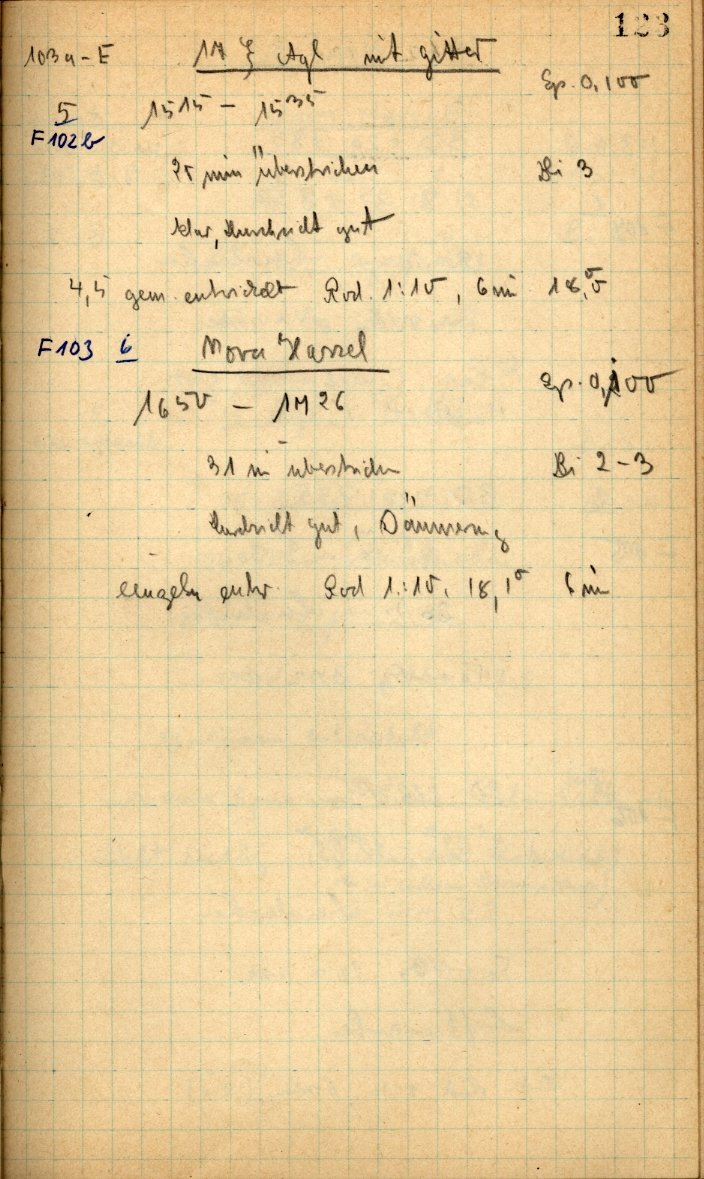 123
103a-E 17 ζ Aql mit gitter
Sp. 0,100
5 15 15 - 15 35
F102b
20 min überstrichen Bi 3
klar, Durchsicht gut
4,5 gem. entwickelt Rod. 1:10, 6 min 18,0°
F103 6 Nova Hassel
Sp. 0,100
16 50 - 17 26
31 min überstrichen Bi 2-3
Durchsicht gut, Dämmerung
einzeln entw. Rod 1:10, 18,1° 6 min